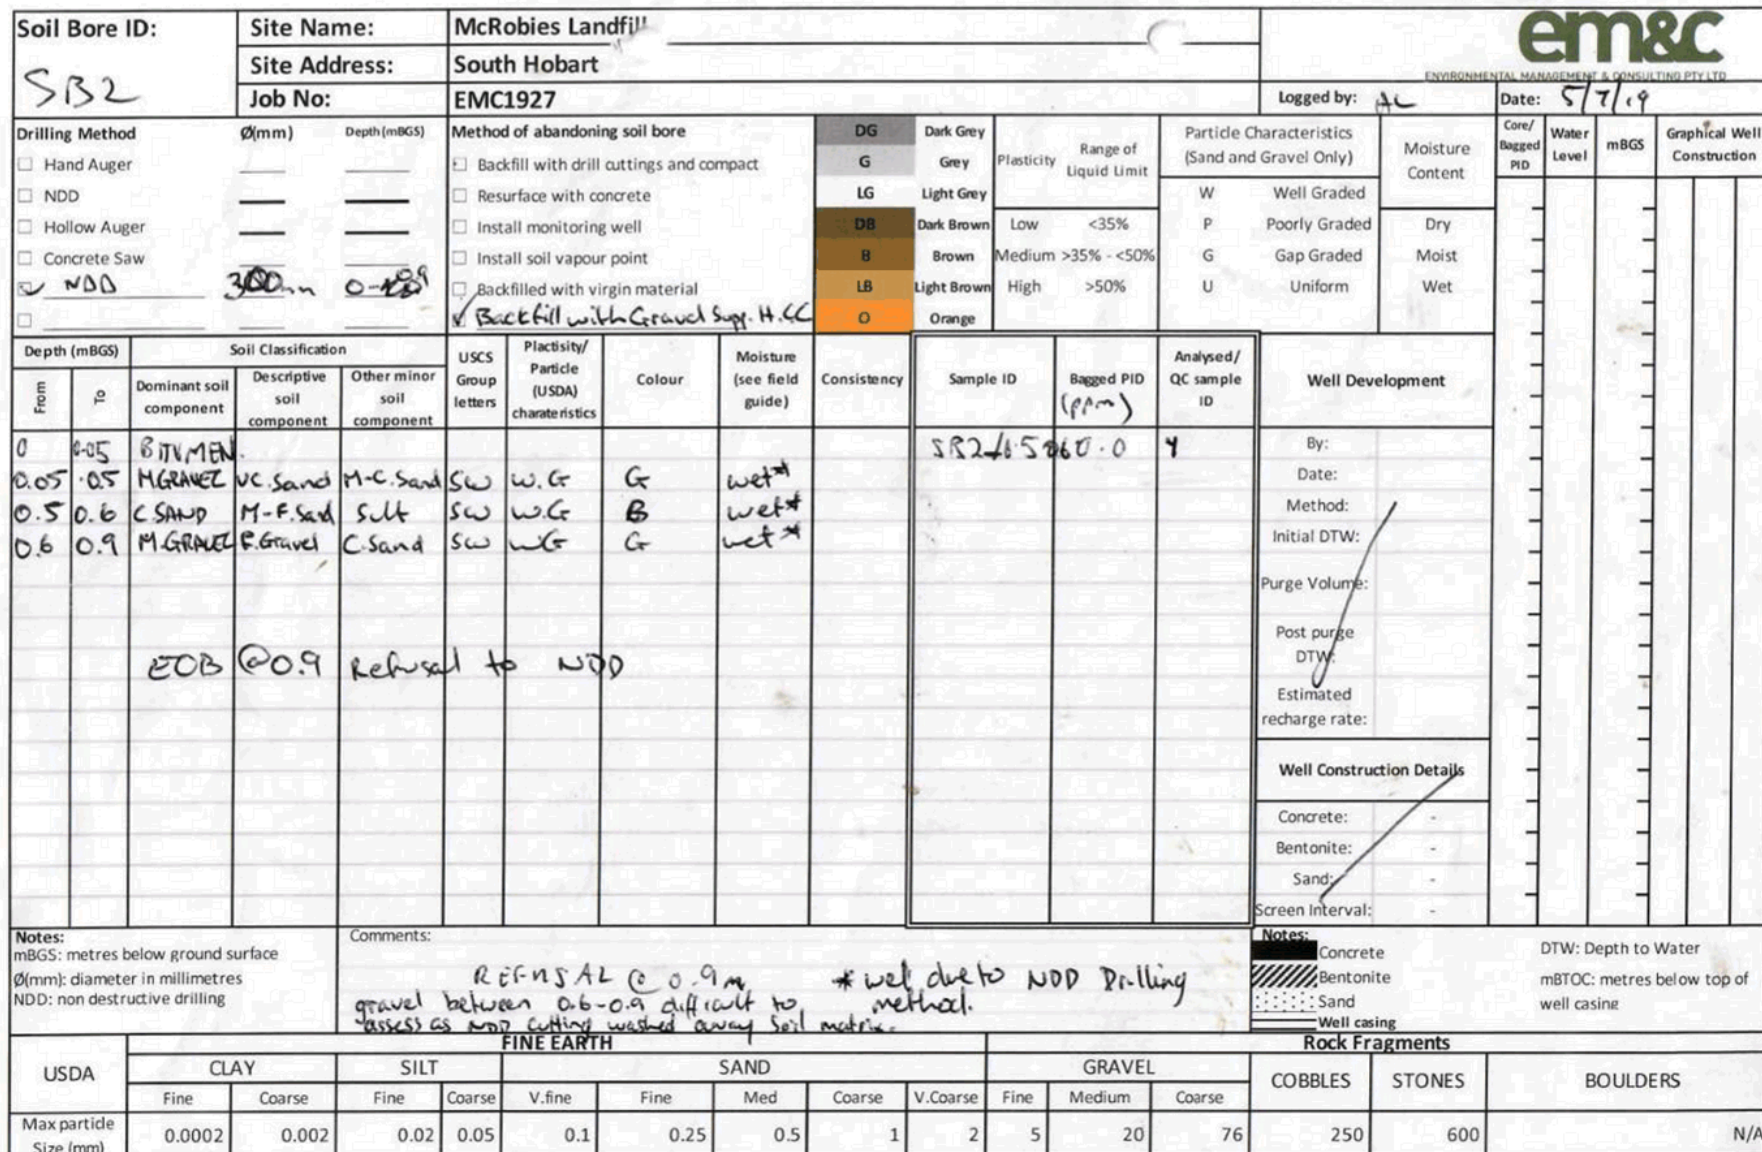 Soil Bore ID: Site Name: McRobies Landfill
em&c
ENVIRONMENTAL MANAGEMENT & CONSULTING PTY LTD
SB2
Site Address: South Hobart
Job No: EMC1927
Logged by: AL Date: 5/7/19
Drilling Method Ø(mm) Depth(mBGS)
Hand Auger
NDD
Hollow Auger
Concrete Saw
NDD 300mm 0-
Method of abandoning soil bore
Backfill with drill cuttings and compact
Resurface with concrete
Install monitoring well
Install soil vapour point
Backfilled with virgin material
Backfill with Gravel Supp. H.CC
DG Dark Grey
G Grey
LG Light Grey
DB Dark Brown
B Brown
LB Light Brown
O Orange
Plasticity Range of Liquid Limit
Low <35%
Medium >35% - <50%
High >50%
Particle Characteristics
(Sand and Gravel Only)
W Well Graded
P Poorly Graded
G Gap Graded
U Uniform
Moisture Content
Dry
Moist
Wet
Core/ Bagged PID
Water Level
mBGS
Graphical Well Construction
Depth (mBGS) Soil Classification
From To Dominant soil component Descriptive soil component Other minor soil component USCS Group letters Plactisity/ Particle (USDA) charateristics Colour Moisture (see field guide) Consistency Sample ID Bagged PID (ppm) Analysed/ QC sample ID
0 0.05 BITUMEN. 0.0 Y
0.05 0.5 M.GRAVEL VC.Sand M-C.Sand SW W.G G wet*
0.5 0.6 C.SAND M-F.Sand Silt SW W.G B wet*
0.6 0.9 M.GRAVEL F.Gravel C.Sand SW WG G wet*
EOB @0.9 Refusal to NDD
Well Development
By:
Date:
Method:
Initial DTW:
Purge Volume:
Post purge
DTW:
Estimated
recharge rate:
Well Construction Details
Concrete: -
Bentonite: -
Sand: -
Screen Interval: -
Notes:
mBGS: metres below ground surface
Ø(mm): diameter in millimetres
NDD: non destructive drilling
Comments:
REFUSAL @ 0.9m
gravel between 0.6-0.9 difficult to
assess as NDD cutting washed away soil matrix.
* wet due to NDD Drilling
method.
Notes:
Concrete
Bentonite
Sand
Well casing
DTW: Depth to Water
mBTOC: metres below top of
well casing
FINE EARTH Rock Fragments
USDA CLAY SILT SAND GRAVEL COBBLES STONES BOULDERS
Fine Coarse Fine Coarse V.fine Fine Med Coarse V.Coarse Fine Medium Coarse
Max particle
Size (mm) 0.0002 0.002 0.02 0.05 0.1 0.25 0.5 1 2 5 20 76 250 600 N/A